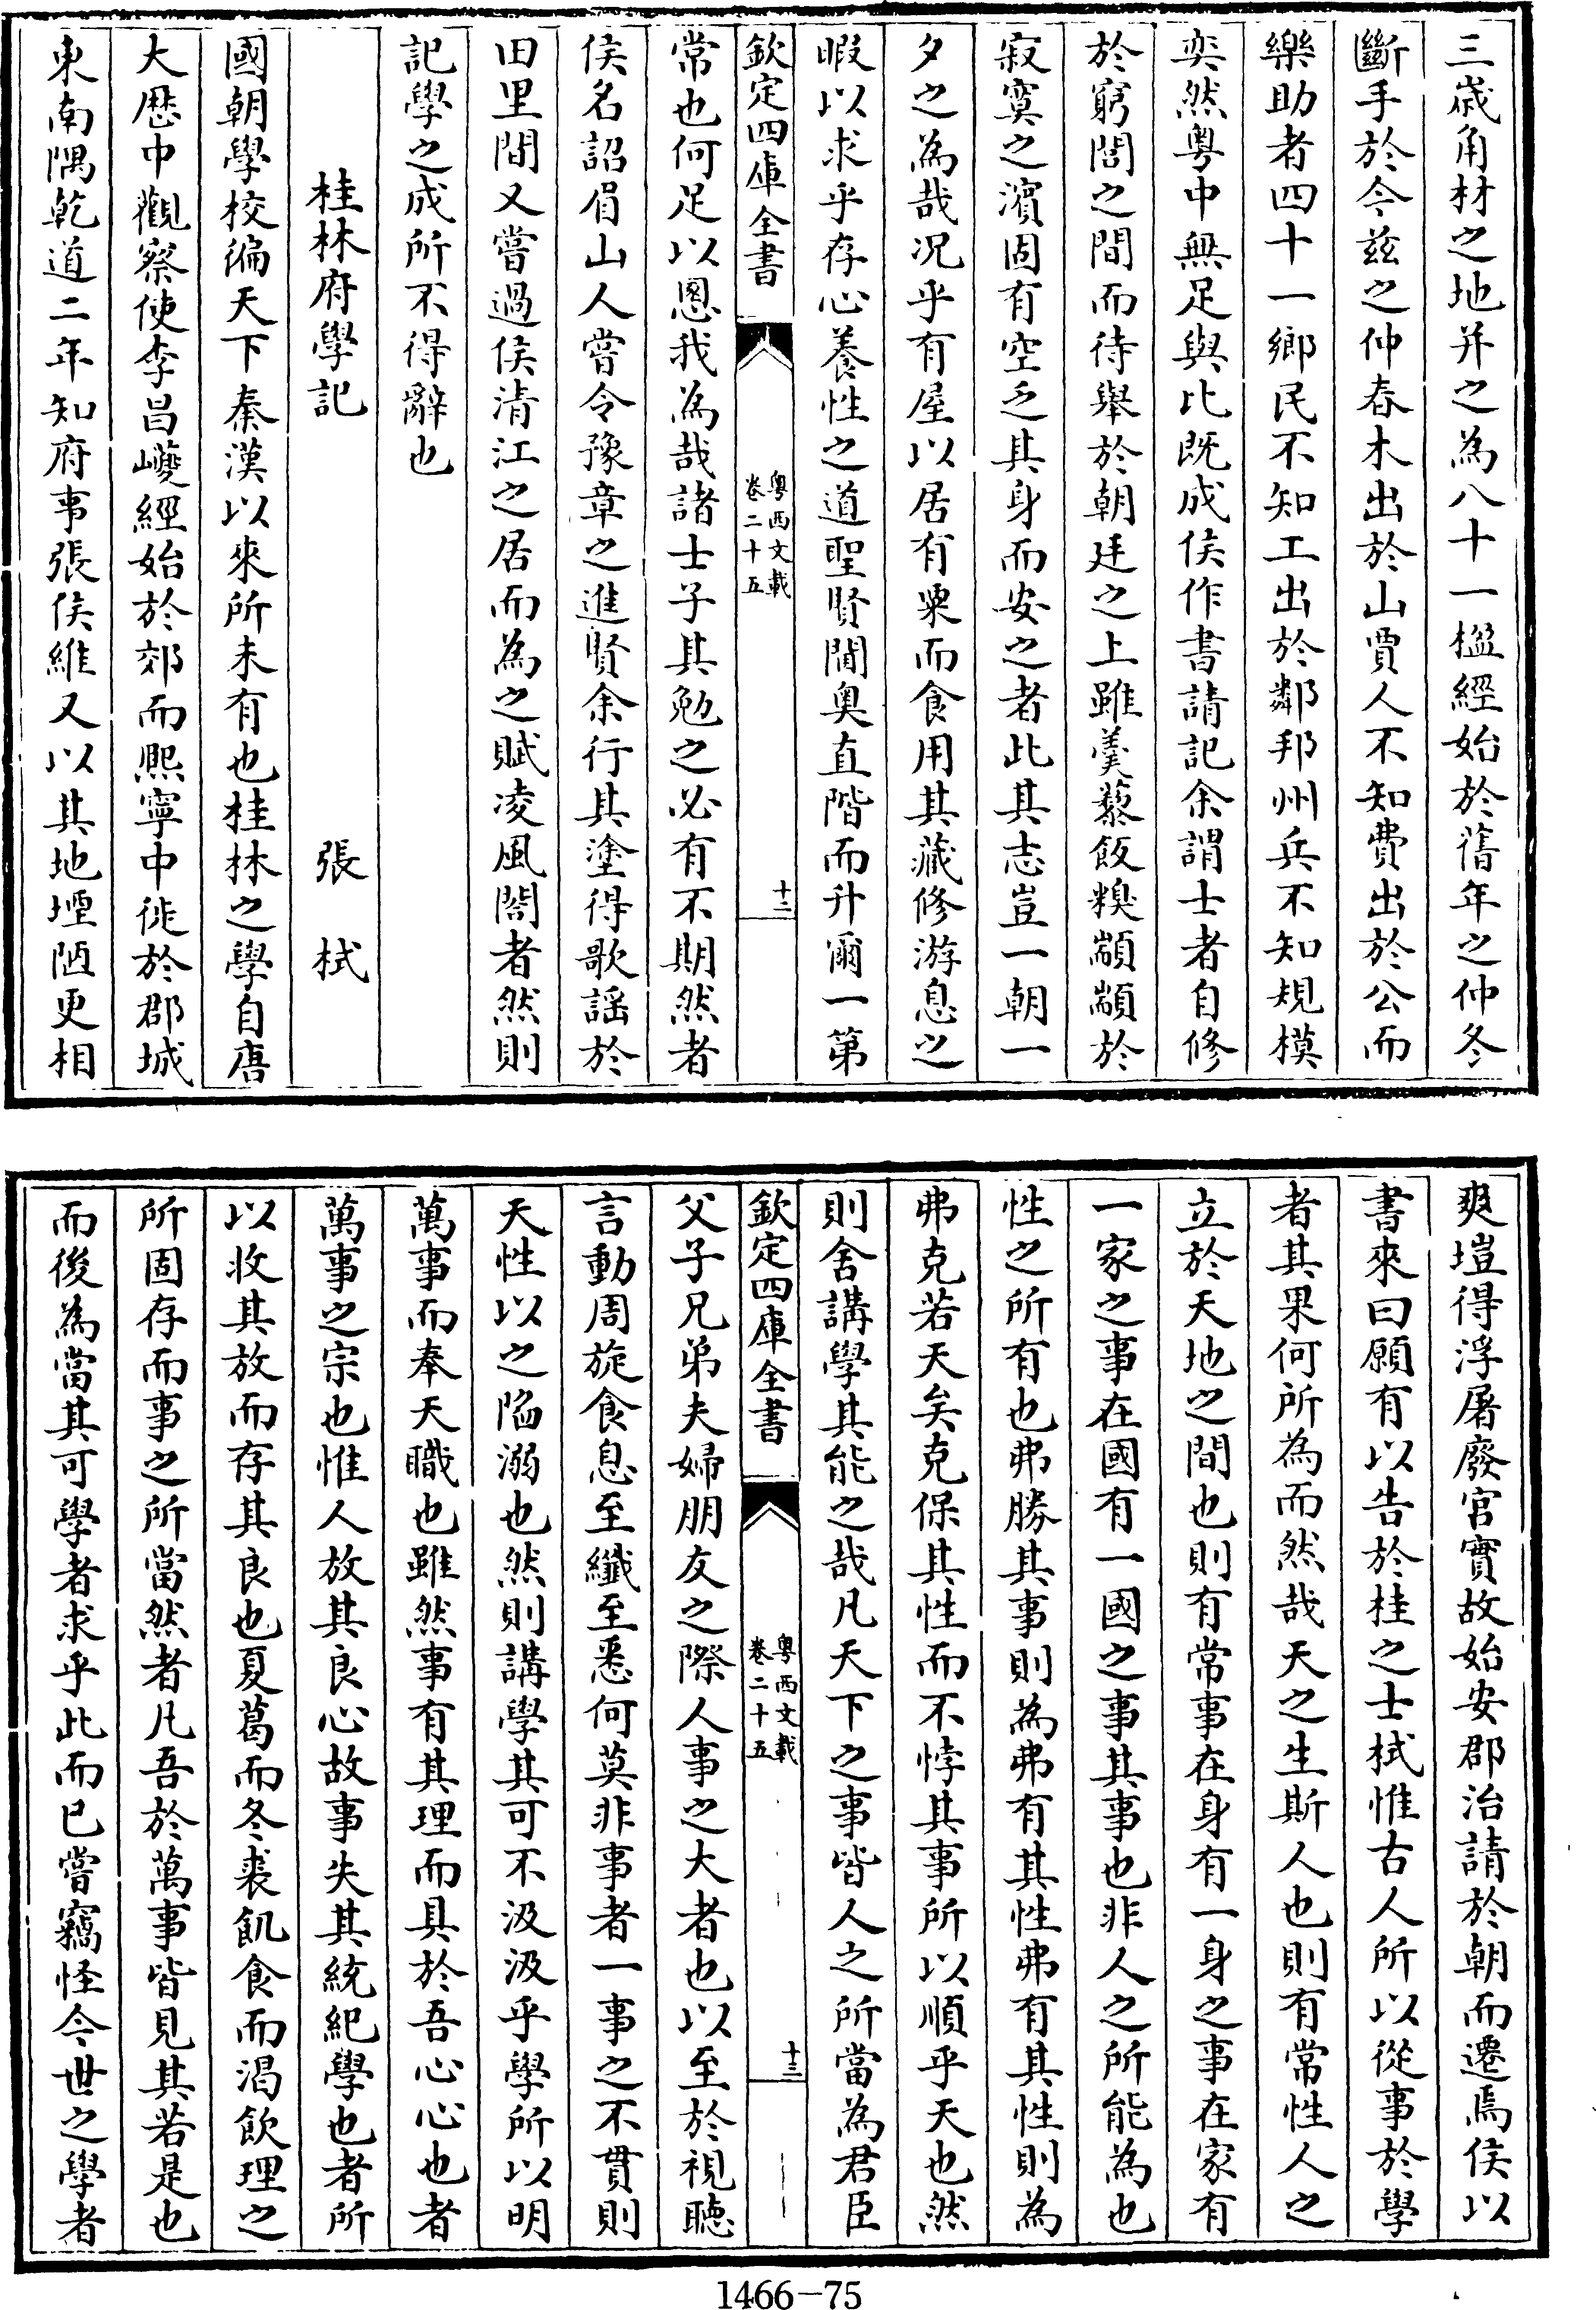 三歳角材之地并之為八十一楹經始於舊年之仲冬
斷手於今兹之仲春木出於山賈人不知費出於公而
樂助者四十一鄉民不知工出於鄰邦州兵不知規模
奕然粤中無足與比既成侯作書請記余謂士者自修
於窮閻之間而待舉於朝廷之上雖羮藜飯糗顒顒於
寂寞之濱固有空乏其身而安之者此其志豈一朝一
夕之為哉况乎有屋以居有粟而食用其藏修游息之
暇以求乎存心養性之道聖賢閫奥直階而升爾一第
欽定四庫全書
粤西文載
卷二十五
十二
常也何足以慁我為哉諸士子其勉之必有不期然者
侯名詔眉山人嘗令豫章之進賢余行其塗得歌謡於
田里間又嘗過侯清江之居而為之賦凌風閣者然則
記學之成所不得辭也
桂林府學記
張栻
國朝學校徧天下秦漢以來所未有也桂林之學自唐
大歴中觀察使李昌巙經始於郊而熈寧中徙於郡城
東南隅乾道二年知府事張侯維又以其地堙陋更相
爽塏得浮屠廢宫實故始安郡治請於朝而遷焉侯以
書來曰願有以告於桂之士栻惟古人所以從事於學
者其果何所為而然哉天之生斯人也則有常性人之
立於天地之間也則有常事在身有一身之事在家有
一家之事在國有一國之事其事也非人之所能為也
性之所有也弗勝其事則為弗有其性弗有其性則為
弗克若天矣克保其性而不悖其事所以順乎天也然
則舍講學其能之哉凡天下之事皆人之所當為君臣
欽定四庫全書
粤西文載
卷二十五
十三
父子兄弟夫婦朋友之際人事之大者也以至於視聽
言動周旋食息至纖至悉何莫非事者一事之不貫則
天性以之陷溺也然則講學其可不汲汲乎學所以明
萬事而奉天職也雖然事有其理而具於吾心心也者
萬事之宗也惟人放其良心故事失其統紀學也者所
以收其放而存其良也夏葛而冬裘飢食而渴飲理之
所固存而事之所當然者凡吾於萬事皆見其若是也
而後為當其可學者求乎此而已嘗竊怪今世之學者
1466-75